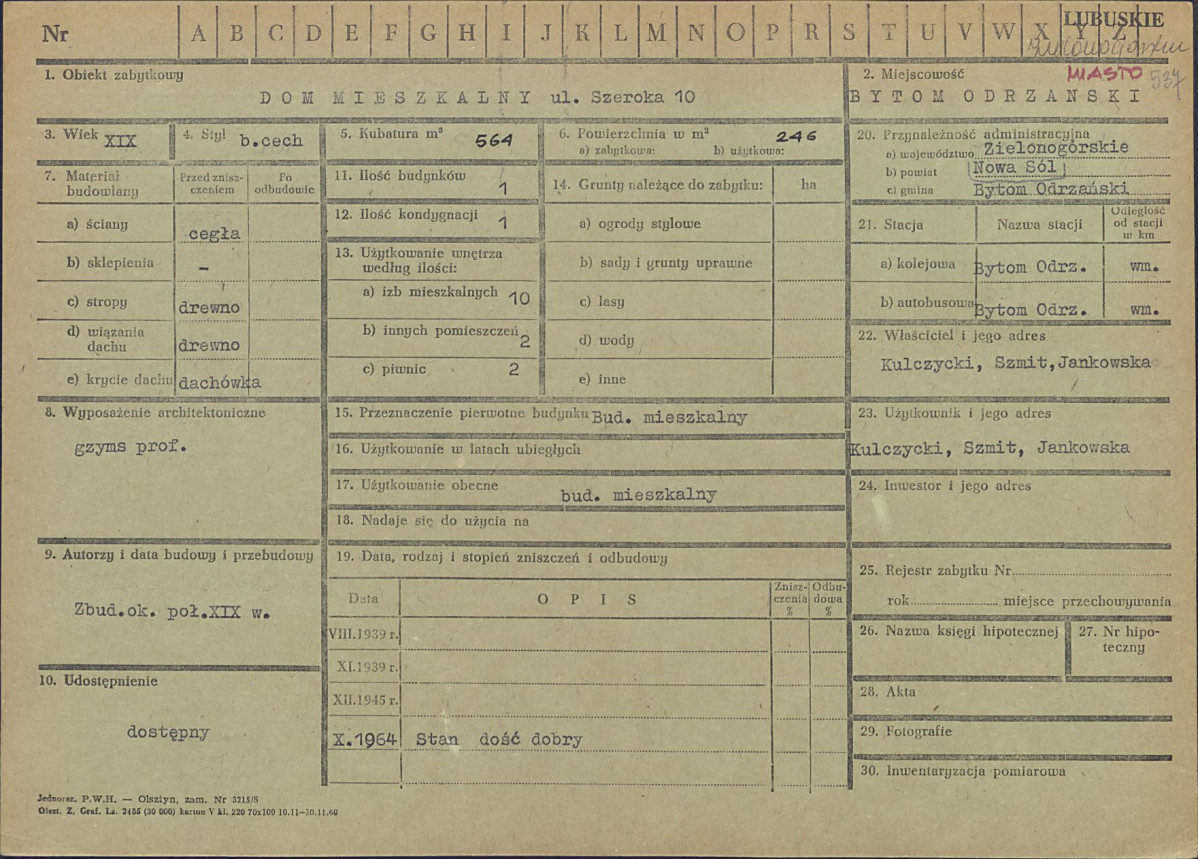 Nr A B C D E F G H I J K L M N O P R S T U V W X Y Z
LUBUSKIE
MIASTO 537
1. Obiekt zabytkowy
DOM MIESZKALNY ul. Szeroka 10
2. Miejscowość
BYTOM ODRZANSKI
3. Wiek XIX
4. Styl b.cech
5. Kubatura m³ 564
6. Powierzchnia w m² 246
a) zabytkowa: b) użytkowa:
7. Materiał budowlany
Przed znisz-
czeniem
Po
odbudowie
a) ściany cegła
b) sklepienia -
c) stropy drewno
d) wiązania
dachu drewno
e) krycie dachu dachówka
8. Wyposażenie architektoniczne
gzyms prof.
9. Autorzy i data budowy i przebudowy
Zbud.ok. poł.XIX w.
10. Udostępnienie
dostępny
11. Ilość budynków 1
12. Ilość kondygnacji 1
13. Użytkowanie wnętrza
według ilości:
a) izb mieszkalnych 10
b) innych pomieszczeń 2
c) piwnic 2
14. Grunty należące do zabytku: ha
a) ogrody stylowe
b) sady i grunty uprawne
c) lasy
d) wody
e) inne
15. Przeznaczenie pierwotne budynku Bud. mieszkalny
16. Użytkowanie w latach ubiegłych
17. Użytkowanie obecne bud. mieszkalny
18. Nadaje się do użycia na
19. Data, rodzaj i stopień zniszczeń i odbudowy
Data OPIS
Znisz-
czenia
%
Odbu-
dowa
%
VIII.1939 r.
XI.1939 r.
XII.1945 r.
X.1964 Stan dość dobry
20. Przynależność administracyjna
a) województwo Zielonogórskie
b) powiat Nowa Sól
c) gmina Bytom Odrzański
21. Stacja Nazwa stacji
Odległość
od stacji
w km
a) kolejowa Bytom Odrz. wm.
b) autobusowa Bytom Odrz. wm.
22. Właściciel i jego adres
Kulczycki, Szmit,Jankowska
23. Użytkownik i jego adres
Kulczycki, Szmit, Jankowska
24. Inwestor i jego adres
25. Rejestr zabytku Nr
rok miejsce przechowywania
26. Nazwa księgi hipotecznej
27. Nr hipo-
teczny
28. Akta
29. Fotografie
30. Inwentaryzacja pomiarowa
Jednoraz. P.W.H. — Olsztyn, zam. Nr 3215/S
Olszt. Z. Graf. Lz. 2455 (30 000) karton V kl. 220 70x100 10.11—30.11.60